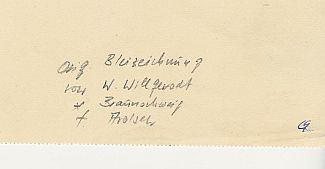 Orig Bleizeichnung
von W. Willgerodt
* Braunschweig
† Arolsen